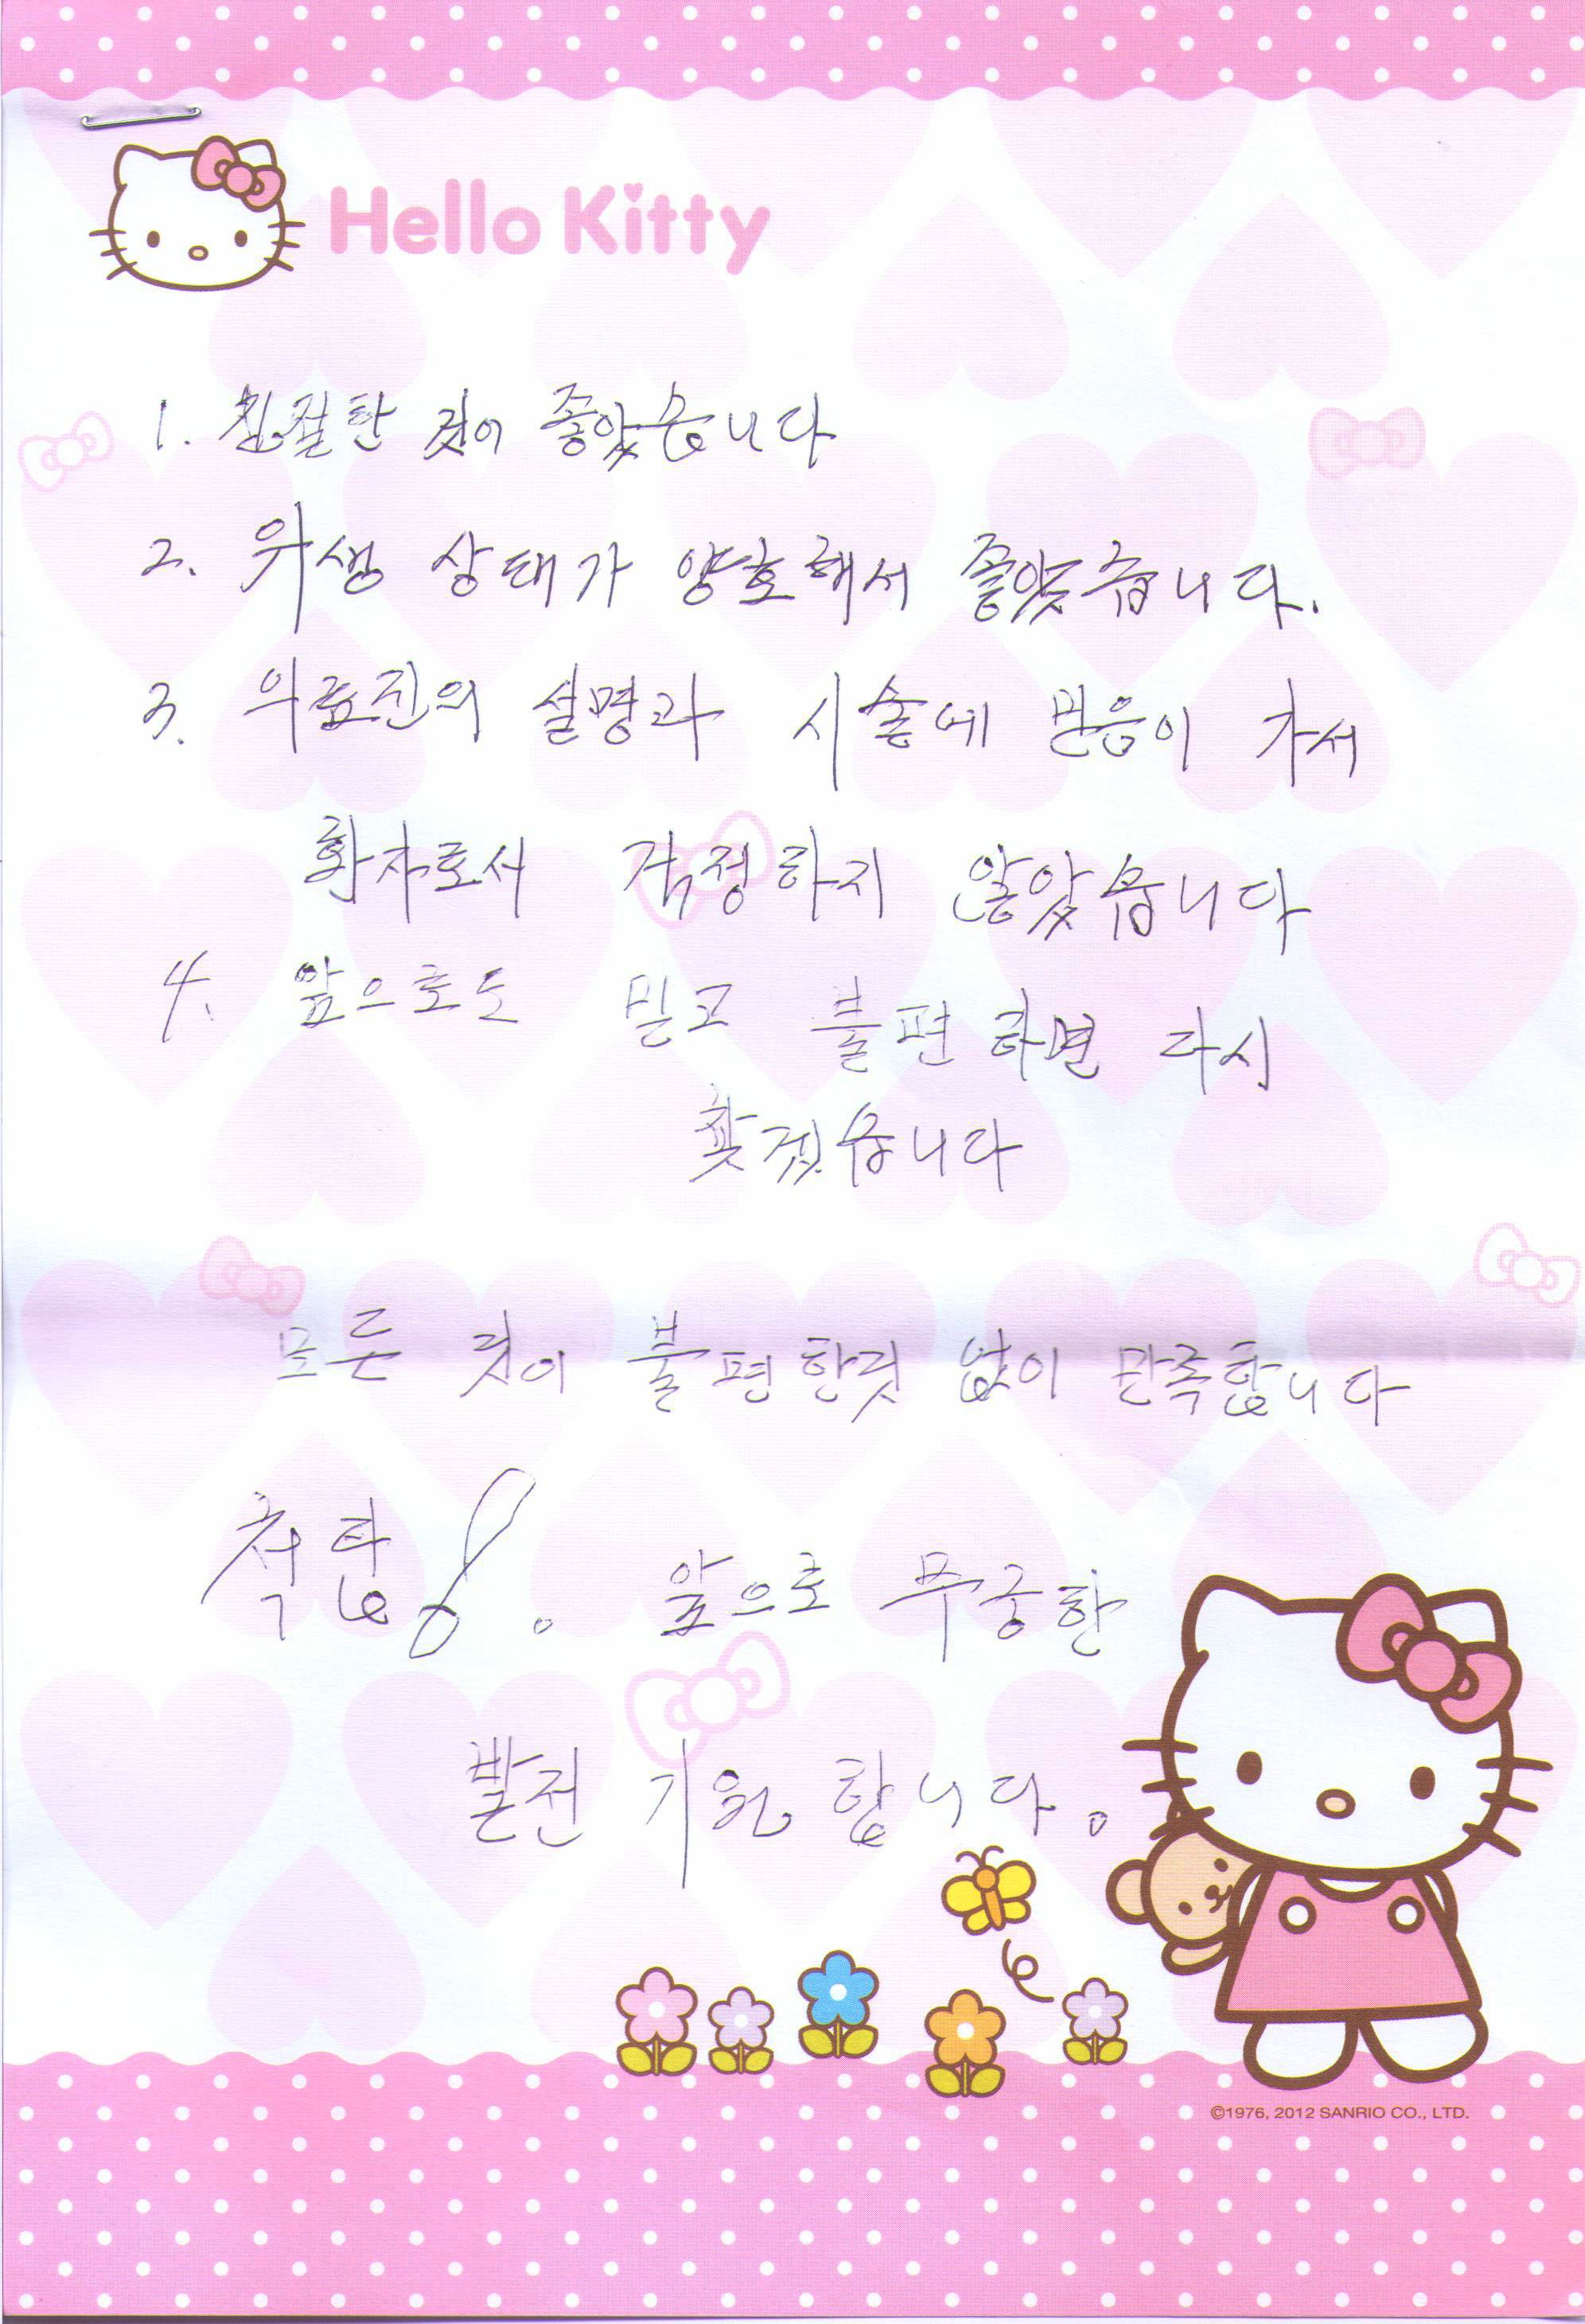 Hello Kitty
1. 친절한 것이 좋았습니다
2. 위생 상태가 양호해서 좋았습니다.
3. 의료진의 설명과 시술에 믿음이 가서
환자로서 걱정하지 않았습니다
4. 앞으로도 믿고 불편하면 다시
찾겠습니다
모든 것이 불편한것 없이 만족합니다
척탑! 앞으로 무궁한
발전 기원 합니다.
©1976, 2012 SANRIO CO., LTD.